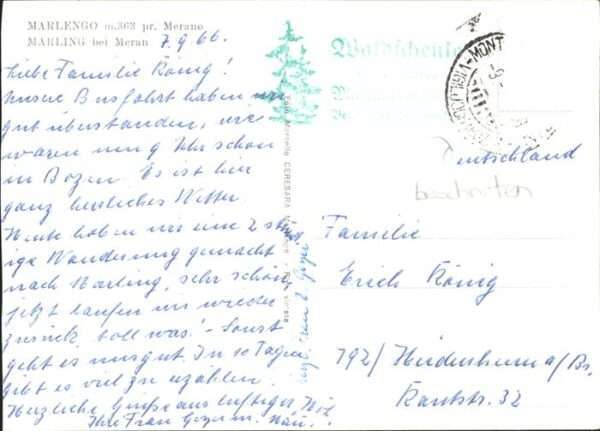 MARLENGO m.363 pr. Merano
MARLING bei Meran 7.9.66.
Liebe Familie König!
Unsere Busfahrt haben wir
gut überstanden, wir
waren um 9 Uhr schon
in Bozen. Es ist hier
ganz herrliches Wetter
Heute haben wir eine 2 stün
ige Wanderung gemacht
nach Marling, sehr schön,
jetzt laufen wir wieder
zurück, toll was! - Sonst
geht es uns gut. In 10 Tagen
gibt es viel zu erzählen.
Herzliche Grüße aus luftiger Höh
Ihre Frau
Waldschenke
Deutschland
Familie
Erich König
792/ Heidenheim a/Br.
Kantstr. 32